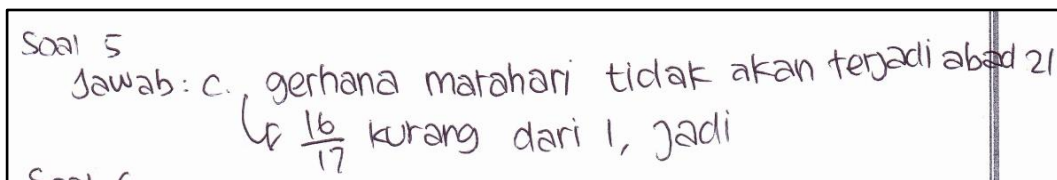 Soal 5
Jawab: C. gerhana matahari tidak akan terjadi abad 21
↳ 16/17 kurang dari 1, jadi